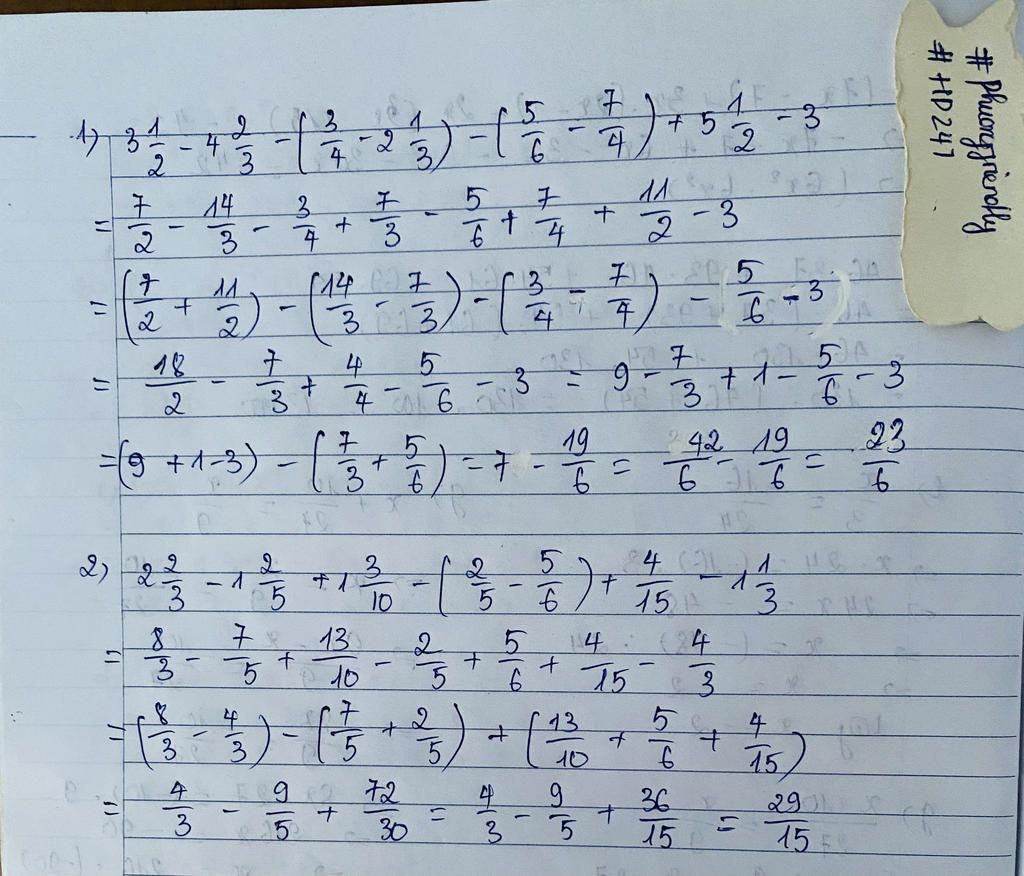 1) 3 1/2 - 4 2/3 - (3/4 - 2 1/3) - (5/6 - 7/4) + 5 1/2 - 3
= 7/2 - 14/3 - 3/4 + 7/3 - 5/6 + 7/4 + 11/2 - 3
= (7/2 + 11/2) - (14/3 - 7/3) - (3/4 - 7/4) - 5/6 - 3
= 18/2 - 7/3 + 4/4 - 5/6 - 3 = 9 - 7/3 + 1 - 5/6 - 3
= (9 + 1 - 3) - (7/3 + 5/6) = 7 - 19/6 = 42/6 - 19/6 = 23/6
2) 2 2/3 - 1 2/5 + 1 3/10 - (2/5 - 5/6) + 4/15 - 1 1/3
= 8/3 - 7/5 + 13/10 - 2/5 + 5/6 + 4/15 - 4/3
= (8/3 - 4/3) - (7/5 + 2/5) + (13/10 + 5/6 + 4/15)
= 4/3 - 9/5 + 72/30 = 4/3 - 9/5 + 36/15 = 29/15
#phuongfriendly
#HD247